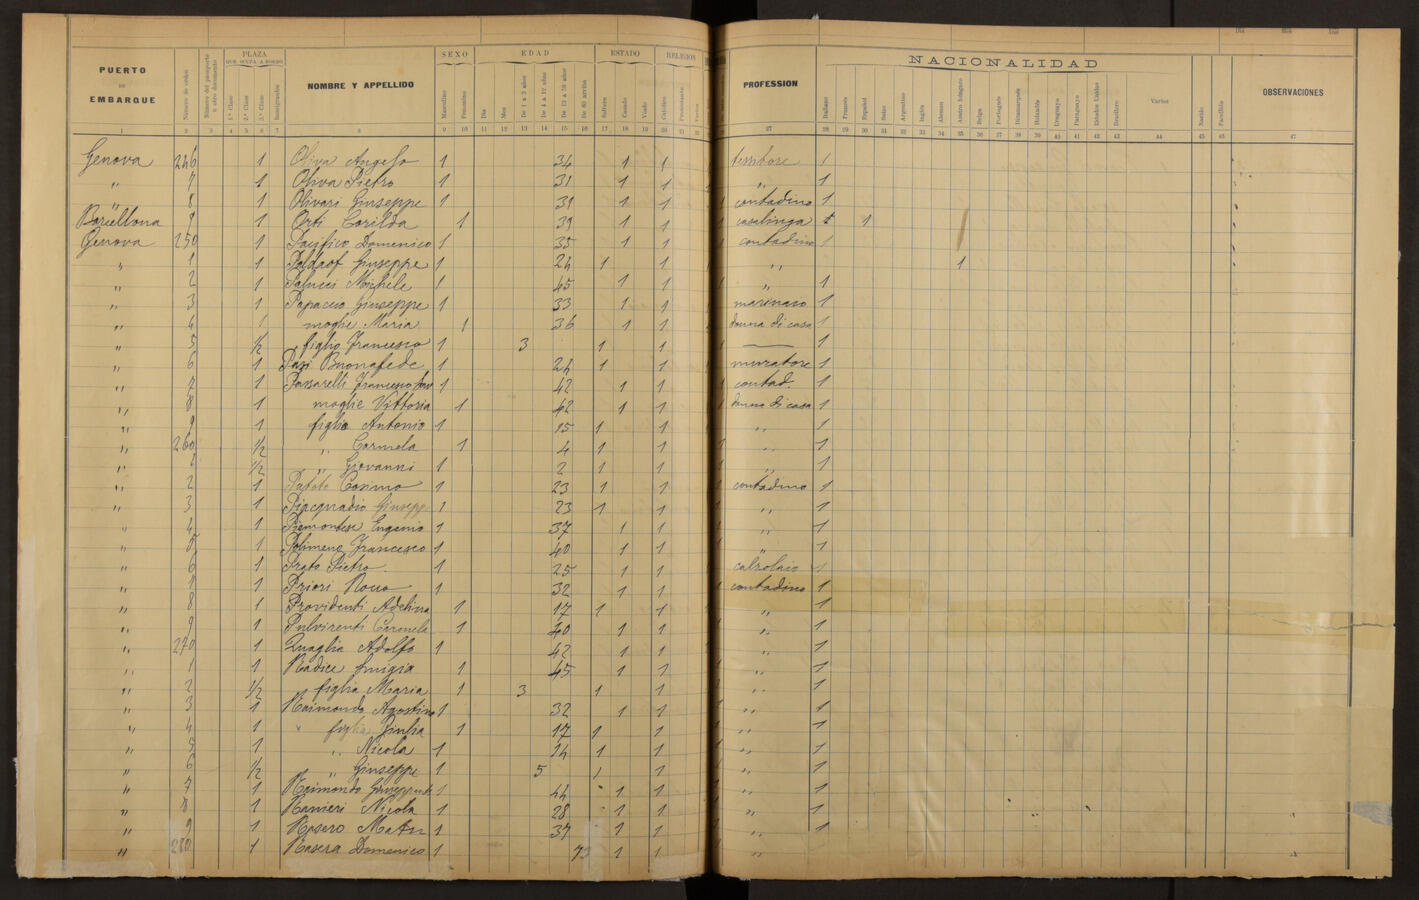 PUERTO DE EMBARQUE | Número de orden | Número del pasaporte u otro documento | PLAZA QUE OCUPA A BORDO | 1.ª Clase | 2.ª Clase | 3.ª Clase | NOMBRE Y APPELLIDO | SEXO | Masculino | Femenino | EDAD | Dia | Mes | De 1 a 3 años | De 4 a 12 años | ESTADO | Soltero | Casado | Viudo | RELIGION | Católico | Protestante | PROFESSION | NACIONALIDAD | Italiano | Francés | Español | Suizo | Argentino | Inglés | Aleman | Austro húngaro | Belga | Portugués | Dinamarqués | Holandés | Uruguayo | Paraguayo | Estados Unidos | Brasilero | Varios | OBSERVACIONES
Genova 246 1 Oliva Angelo 1 34 1 1 1
" 7 1 Oliva Pietro 1 31 1 1 " 1
" 8 1 Olivari Giuseppe 1 31 1 1 contadino 1
Barcellona 9 1 Orti Corilda 1 39 1 1 casalinga 1
Genova 250 1 Pacifico Domenico 1 35 1 1 contadino 1
" 1 1 Giuseppe 1 24 1 1 " 1
" 2 1 Michele 1 45 1 1 " 1
" 3 1 Giuseppe 1 33 1 1 marinaro 1
" 4 1 moglie Maria 1 36 1 1 donna di casa 1
" 5 1/2 figlio Francesco 1 3 1 1 1
" 6 1 Buonafede 1 24 1 1 muratore 1
" 7 1 Passarelli Francesco 1 42 1 1 contad. 1
" 8 1 moglie Vittoria 1 42 1 1 donna di casa 1
" 9 1 figlio Antonio 1 15 1 1 " 1
" 260 1/2 " Carmela 1 4 1 1 " 1
" 1 1/2 " Giovanni 1 2 1 1 " 1
" 2 1 Cosimo 1 23 1 1 contadino 1
" 3 1 1 23 1 1 " 1
" 4 1 Piemontese Eugenio 1 37 1 1 " 1
" 5 1 Polimeno Francesco 1 40 1 1 " 1
" 6 1 Prato Pietro 1 25 1 1 calzolaio 1
" 7 1 Priori Rocco 1 32 1 1 contadino 1
" 8 1 Providenti Adelina 1 17 1 1 " 1
" 9 1 Pulvirenti Carmela 1 40 1 1 " 1
" 270 1 Quaglia Adolfo 1 42 1 1 " 1
" 1 1 Radice Luigia 1 45 1 1 " 1
" 2 1/2 " figlia Maria 1 3 1 1 " 1
" 3 1 Raimondo Agostino 1 32 1 1 " 1
" 4 1 " Giulia 1 17 1 1 " 1
" 5 1 " Nicola 1 14 1 1 " 1
" 6 1/2 " Giuseppe 1 5 1 1 " 1
" 7 1 Raimondo 1 44 1 1 " 1
" 8 1 Ranieri Nicola 1 28 1 1 " 1
" 9 1 1 37 1 1 " 1
" 280 1 Rasera Domenico 1 73 1 1 "